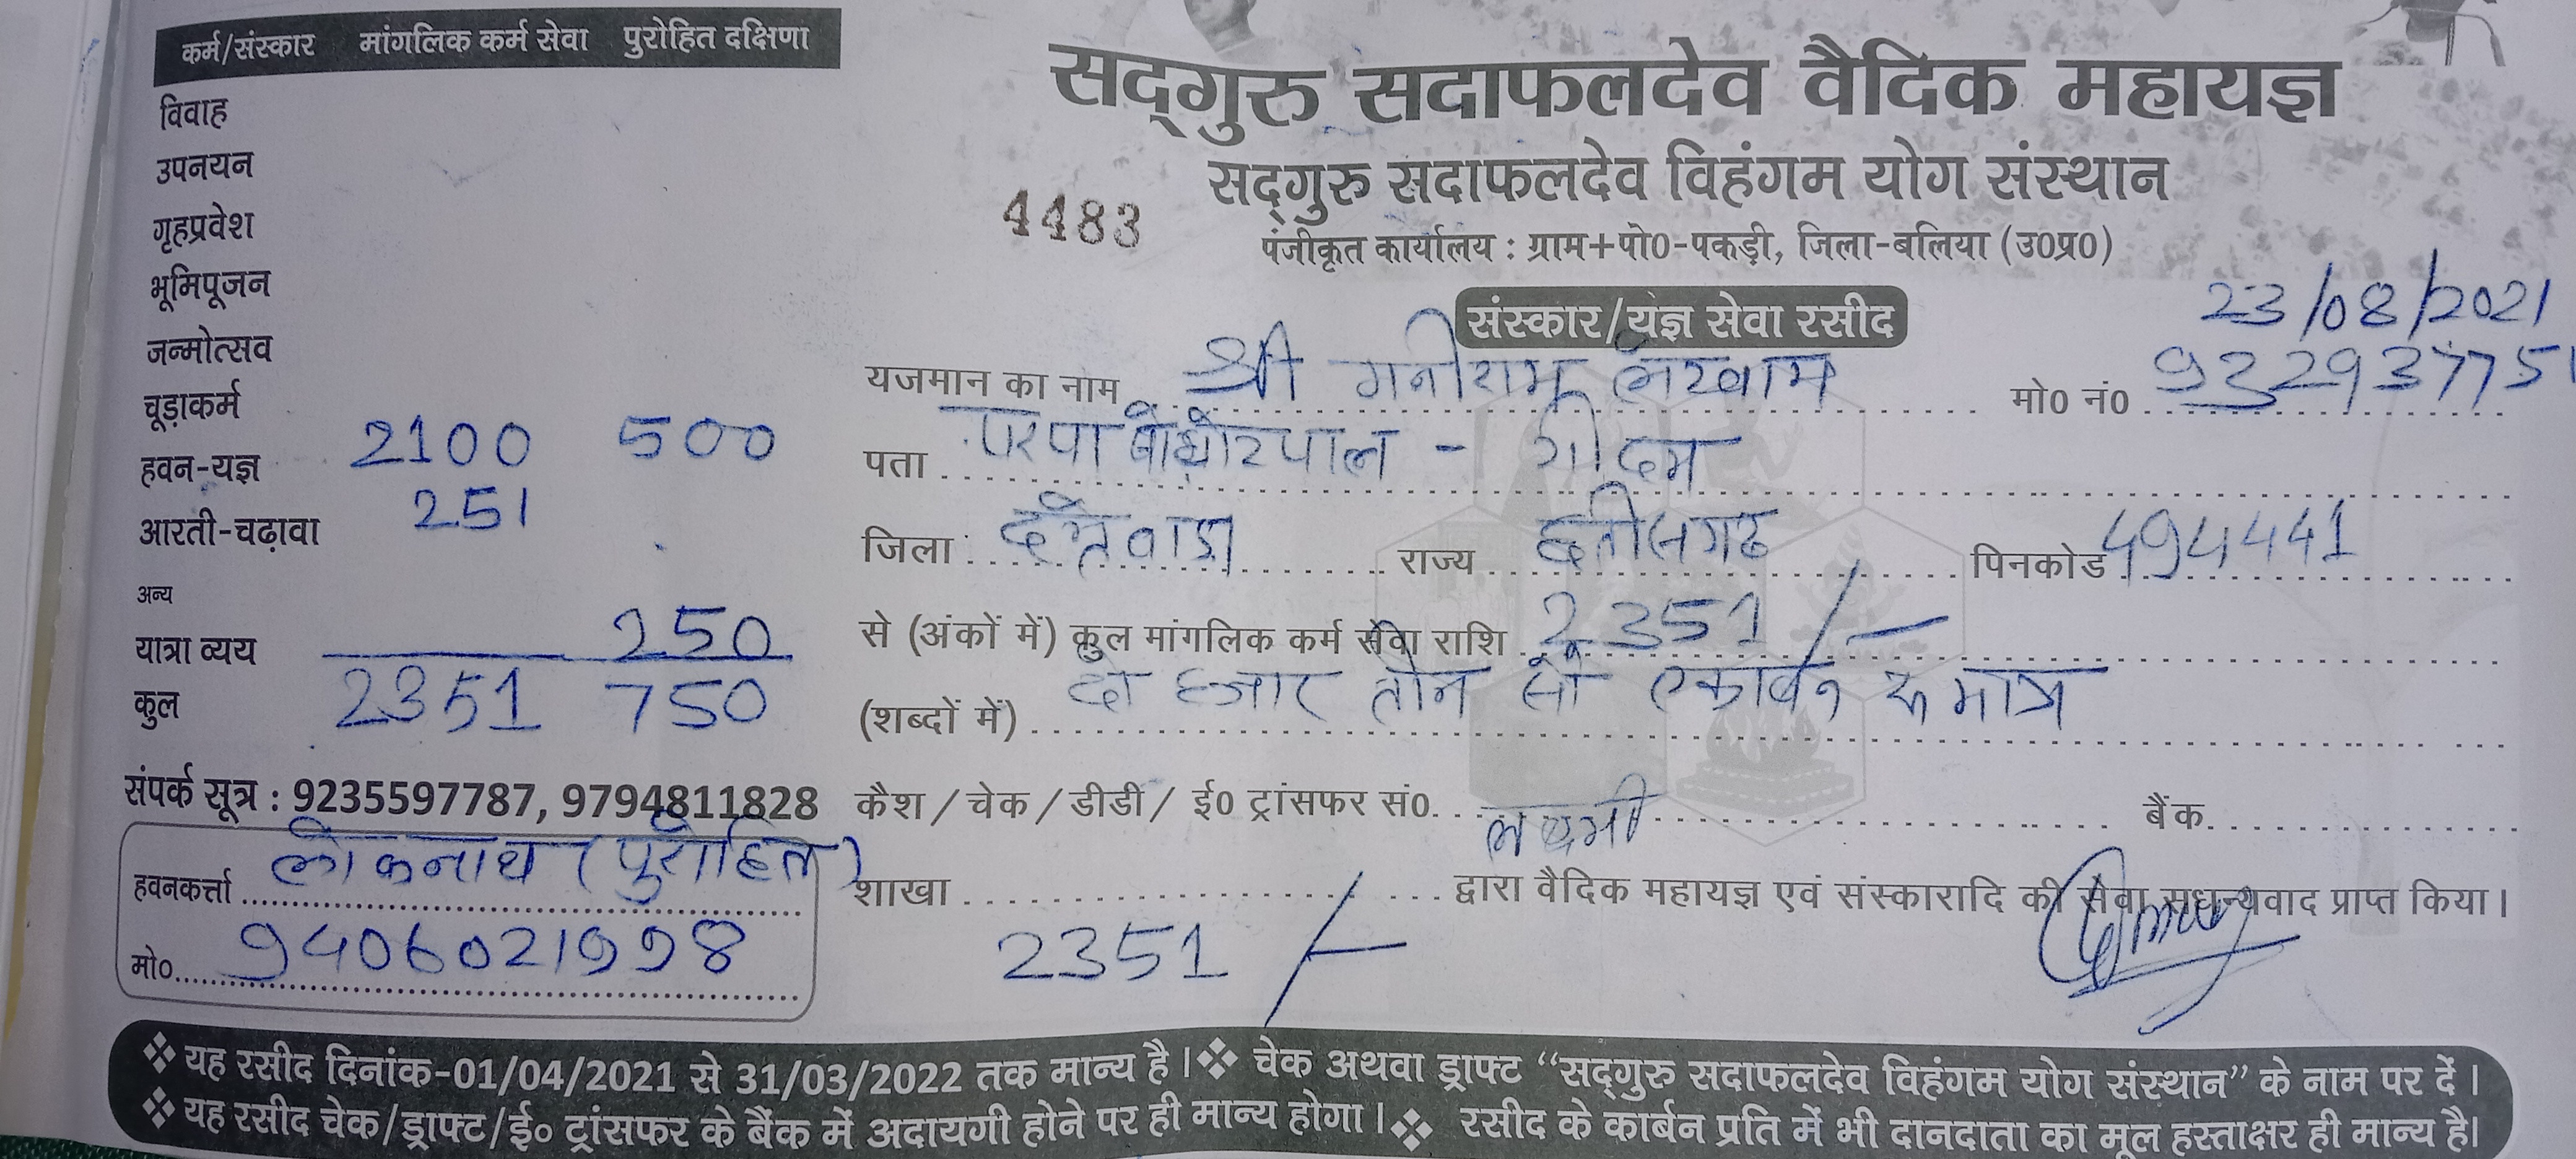 कर्म/संस्कार मांगलिक कर्म सेवा पुरोहित दक्षिणा
विवाह
उपनयन
गृहप्रवेश
भूमिपूजन
जन्मोत्सव
चूड़ाकर्म
हवन-यज्ञ 2100 500
आरती-चढ़ावा 251
अन्य
यात्रा व्यय 250
कुल 2351 750
संपर्क सूत्र : 9235597787, 9794811828
हवनकर्त्ता लोकनाथ (पुरोहित)
मो० 9406021998
सद्गुरु सदाफलदेव वैदिक महायज्ञ
सद्गुरु सदाफलदेव विहंगम योग संस्थान
4483
पंजीकृत कार्यालय : ग्राम+पो0-पकड़ी, जिला-बलिया (उ0प्र0)
संस्कार/यज्ञ सेवा रसीद
23/08/2021
यजमान का नाम श्री मनीराम लेखाम मो0 नं0 9329377751
पता - गीदम
जिला दन्तेवाडा राज्य छत्तीसगढ पिनकोड 494441
से (अंकों में) कुल मांगलिक कर्म सेवा राशि 2351/-
(शब्दों में) दो हजार तीन सौ एकावन रु मात्र
कैश / चेक / डीडी / ई0 ट्रांसफर सं0. बैंक
शाखा द्वारा वैदिक महायज्ञ एवं संस्कारादि की सेवा सधन्यवाद प्राप्त किया।
2351/-
❖ यह रसीद दिनांक-01/04/2021 से 31/03/2022 तक मान्य है। ❖ चेक अथवा ड्राफ्ट “सद्गुरु सदाफलदेव विहंगम योग संस्थान” के नाम पर दें।
❖ यह रसीद चेक/ड्राफ्ट/ई० ट्रांसफर के बैंक में अदायगी होने पर ही मान्य होगा। ❖ रसीद के कार्बन प्रति में भी दानदाता का मूल हस्ताक्षर ही मान्य है।